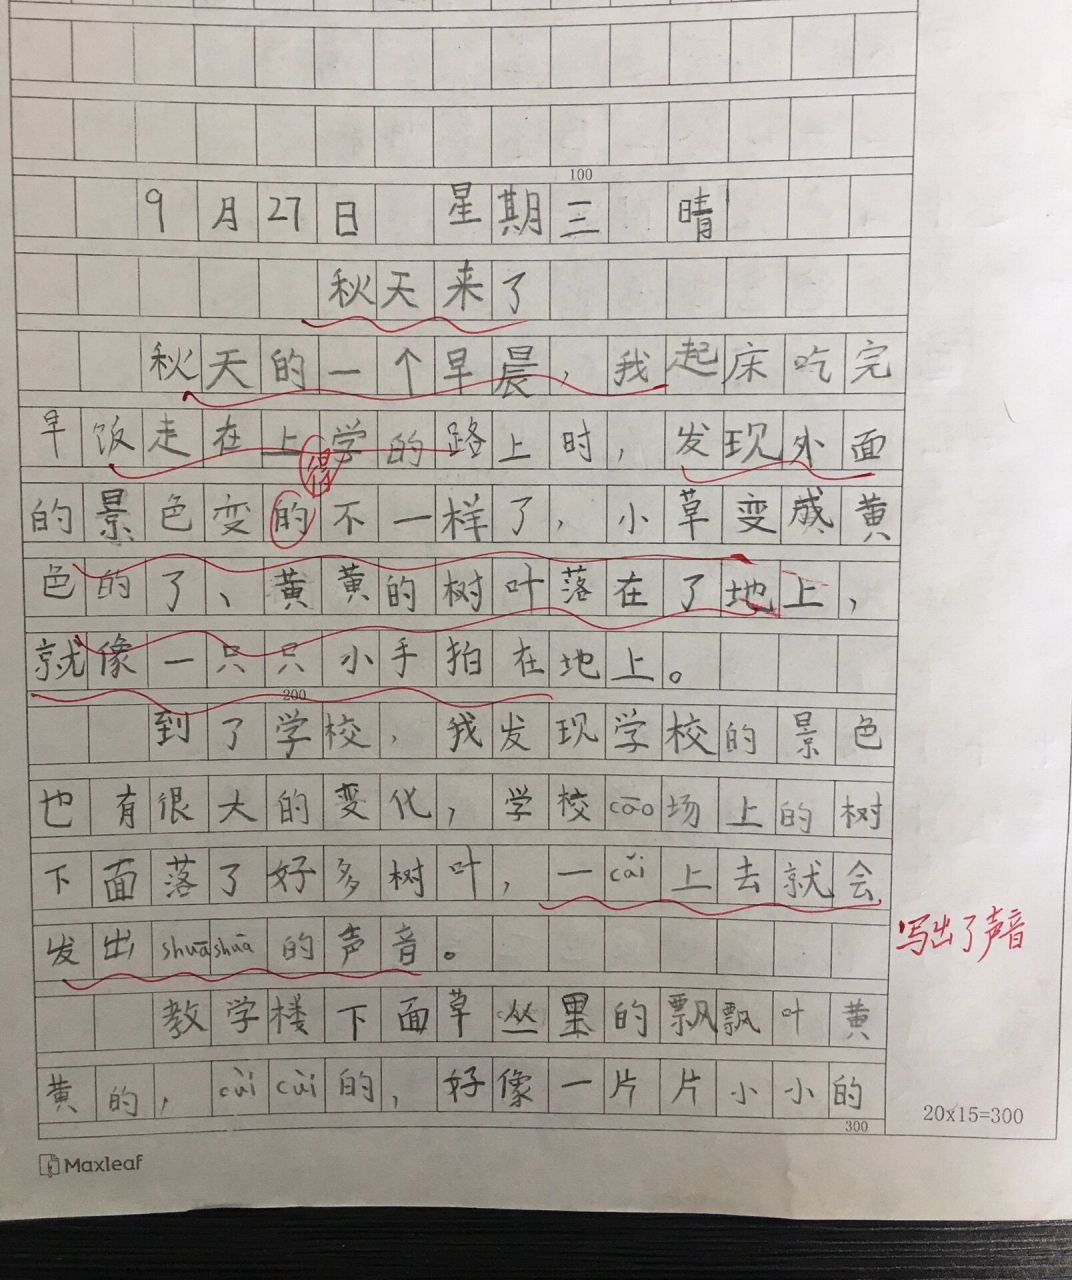 100
9月27日 星期三 晴
秋天来了
秋天的一个早晨，我起床吃完
早饭走在上学的路上时，发现外面
得
的景色变的不一样了，小草变成黄
色的了、黄黄的树叶落在了地上，
就像一只只小手拍在地上。
200
到了学校，我发现学校的景色
也有很大的变化，学校cāo场上的树
下面落了好多树叶，一cǎi上去就会
发出shuāshuā的声音。
写出了声音
教学楼下面草丛里的飘飘叶黄
黄的，cuìcuì的，好像一片片小小的
20x15=300
300
Maxleaf